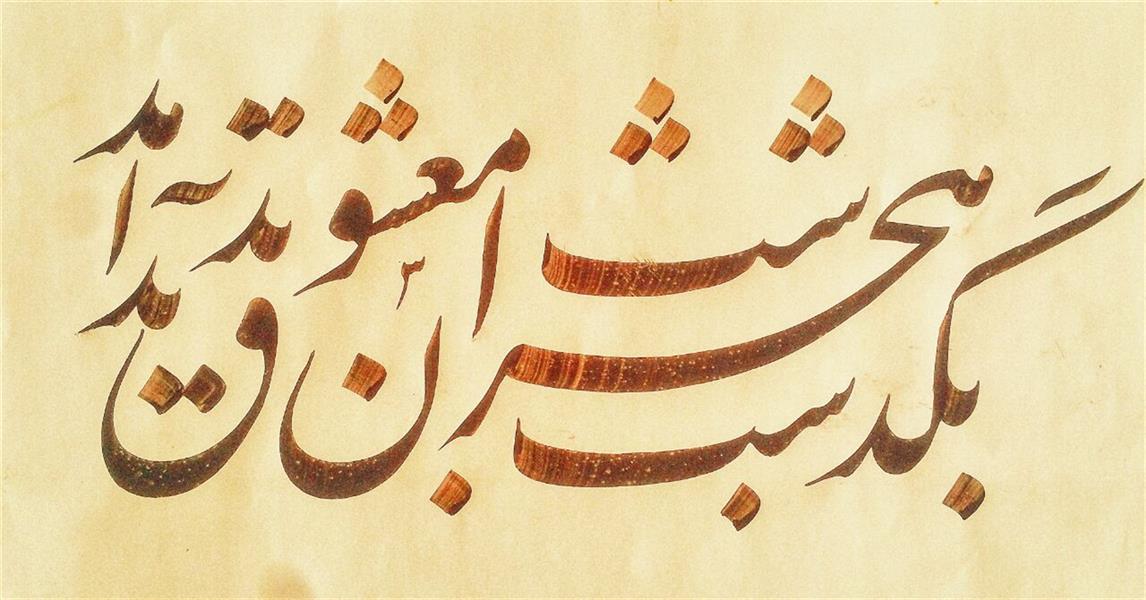 بگذشت شب هجران معشوق پدید آمد